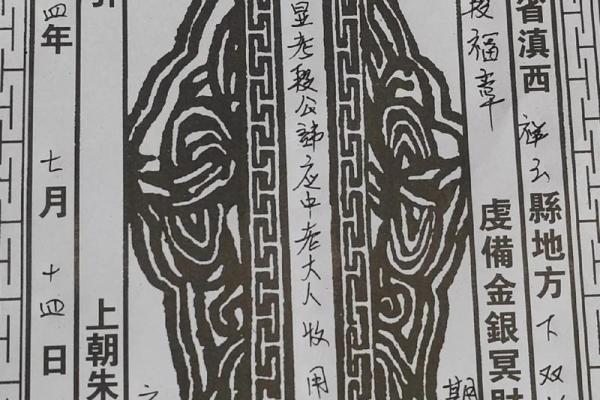 省滇西祥云縣地方下双
段福章
虔備金銀冥財
期
显考段公諱庭中老大人收用
上朝朱
四年七月十四日